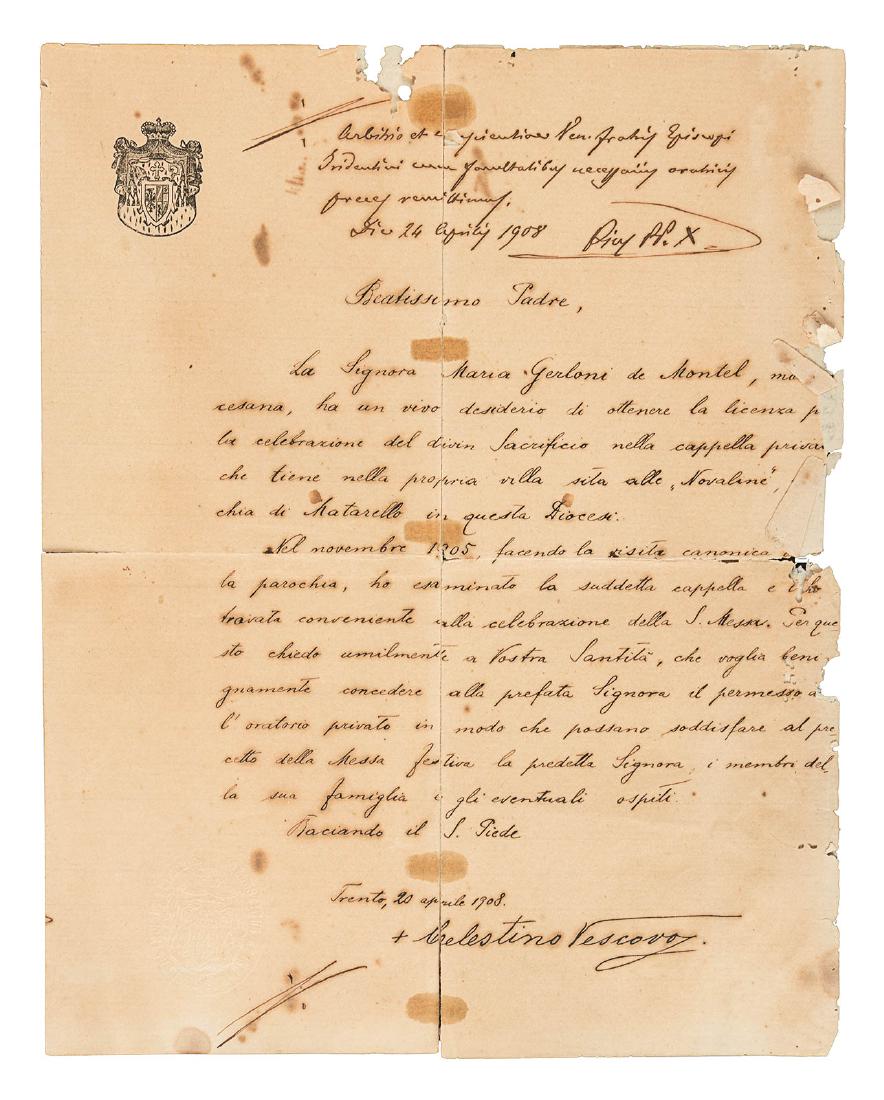 Arbitrio et Ven. fratris Episcopi
Tridentini cum facultatibus necessariis oratricis
preces remittimus.
Die 24 Aprilis 1908 Pius PP. X
Beatissimo Padre,
La Signora Maria Gerloni de Montel, mo
cesana, ha un vivo desiderio di ottenere la licenza p
la celebrazione del divin Sacrificio nella cappella priva
che tiene nella propria villa sita alle „Novaline",
chia di Matarello in questa Diocesi.
Nel novembre 1905, facendo la visita canonica
la parochia, ho esaminato la suddetta cappella e l'ho
trovata conveniente alla celebrazione della S. Messa. Per que
sto chiedo umilmente a Vostra Santità, che voglia beni
gnamente concedere alla prefata Signora il permesso
l'oratorio privato in modo che possano soddisfare al pre-
cetto della Messa festiva la predetta Signora, i membri del
la sua famiglia e gli eventuali ospiti.
Baciando il S. Piede
Trento, 20 aprile 1908.
+ Celestino Vescovo.